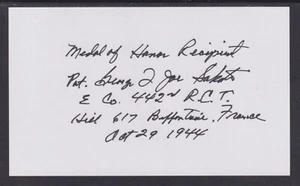 Medal of Honor Recipient
Pvt. George T Joe Sakato
E Co. 442nd R.C.T.
Hill 617 Biffontaine, France
Oct 29 1944